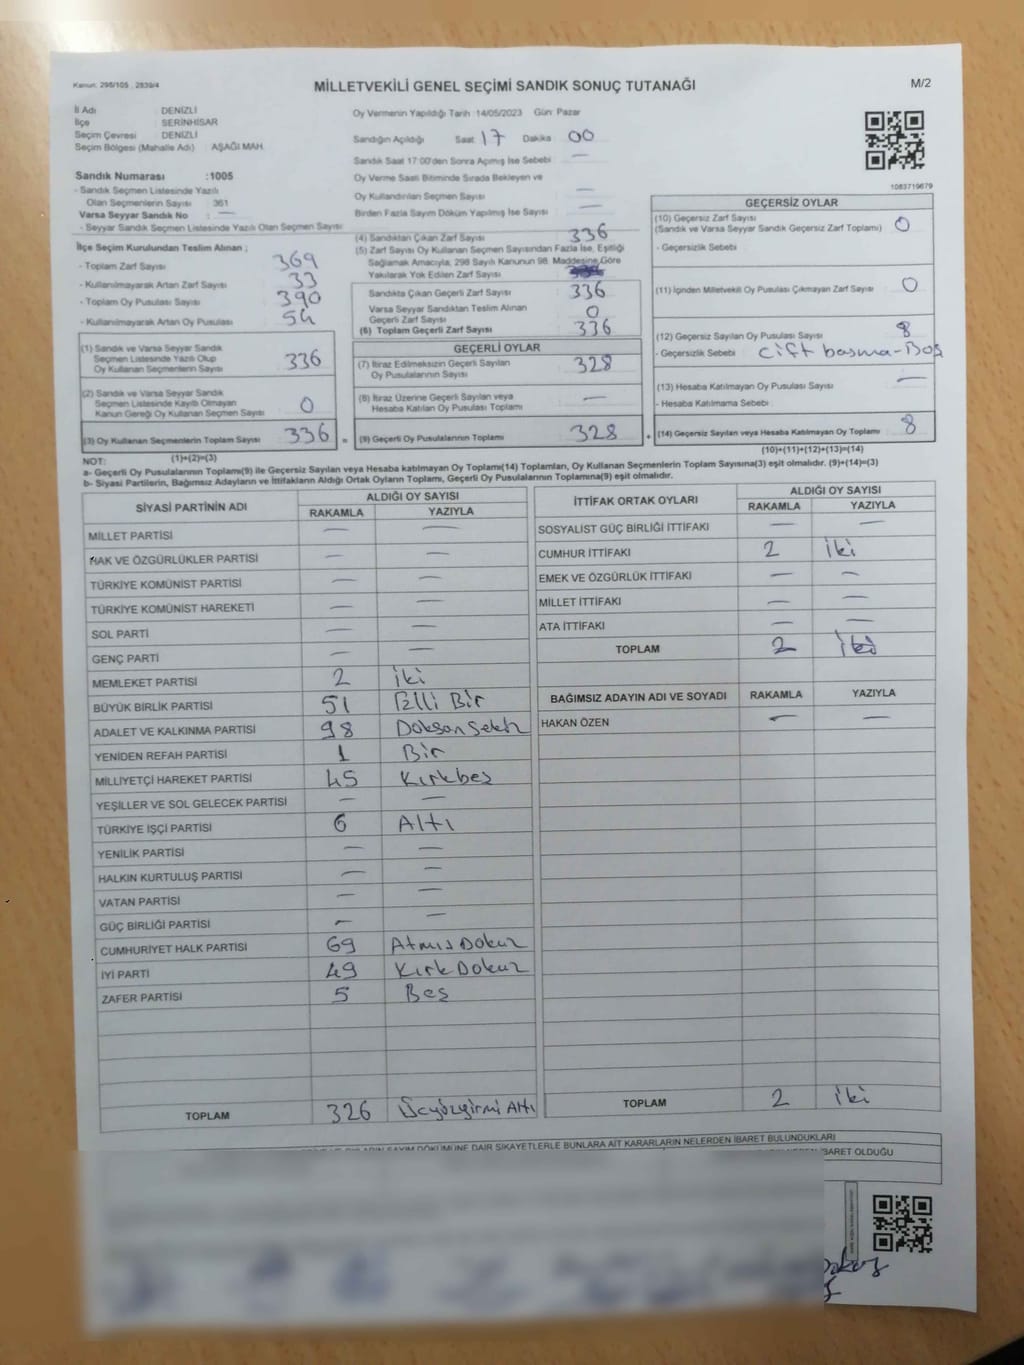 Kanun: 298/105 , 2839/4
MİLLETVEKİLİ GENEL SEÇİMİ SANDIK SONUÇ TUTANAĞI
M/2
İl Adı : DENİZLİ
İlçe : SERİNHİSAR
Seçim Çevresi : DENİZLİ
Seçim Bölgesi (Mahalle Adı) : AŞAĞI MAH.
Sandık Numarası :1005
- Sandık Seçmen Listesinde Yazılı
Olan Seçmenlerin Sayısı : 361
Varsa Seyyar Sandık No : —
- Seyyar Sandık Seçmen Listesinde Yazılı Olan Seçmen Sayısı
İlçe Seçim Kurulundan Teslim Alınan ;
- Toplam Zarf Sayısı 369
- Kullanılmayarak Artan Zarf Sayısı 33
- Toplam Oy Pusulası Sayısı 390
- Kullanılmayarak Artan Oy Pusulası 54
(1) Sandık ve Varsa Seyyar Sandık
Seçmen Listesinde Yazılı Olup
Oy Kullanan Seçmenlerin Sayısı 336
(2) Sandık ve Varsa Seyyar Sandık
Seçmen Listesinde Kayıtlı Olmayan
Kanun Gereği Oy Kullanan Seçmen Sayısı 0
(3) Oy Kullanan Seçmenlerin Toplam Sayısı 336 =
(1)+(2)=(3)
Oy Vermenin Yapıldığı Tarih :14/05/2023 Gün: Pazar
Sandığın Açıldığı Saat 17 Dakika 00
Sandık Saat 17:00'den Sonra Açılmış İse Sebebi —
Oy Verme Saati Bitiminde Sırada Bekleyen ve
Oy Kullandırılan Seçmen Sayısı —
Birden Fazla Sayım Döküm Yapılmış İse Sayısı —
(4) Sandıktan Çıkan Zarf Sayısı 336
(5) Zarf Sayısı Oy Kullanan Seçmen Sayısından Fazla İse, Eşitliği
Sağlamak Amacıyla, 298 Sayılı Kanunun 98. Maddesine Göre
Yakılarak Yok Edilen Zarf Sayısı
Sandıkta Çıkan Geçerli Zarf Sayısı 336
Varsa Seyyar Sandıktan Teslim Alınan
Geçerli Zarf Sayısı 0
(6) Toplam Geçerli Zarf Sayısı 336
GEÇERLİ OYLAR
(7) İtiraz Edilmeksizin Geçerli Sayılan
Oy Pusulalarının Sayısı 328
(8) İtiraz Üzerine Geçerli Sayılan veya
Hesaba Katılan Oy Pusulası Toplamı —
(9) Geçerli Oy Pusulalarının Toplamı 328 +
1083719679
GEÇERSİZ OYLAR
(10) Geçersiz Zarf Sayısı
(Sandık ve Varsa Seyyar Sandık Geçersiz Zarf Toplamı) 0
- Geçersizlik Sebebi
(11) İçinden Milletvekili Oy Pusulası Çıkmayan Zarf Sayısı 0
(12) Geçersiz Sayılan Oy Pusulası Sayısı 8
- Geçersizlik Sebebi : Çift basma-Boş
(13) Hesaba Katılmayan Oy Pusulası Sayısı —
- Hesaba Katılmama Sebebi
(14) Geçersiz Sayılan veya Hesaba Katılmayan Oy Toplamı 8
(10)+(11)+(12)+(13)=(14)
NOT:
a- Geçerli Oy Pusulalarının Toplamı(9) ile Geçersiz Sayılan veya Hesaba katılmayan Oy Toplamı(14) Toplamları, Oy Kullanan Seçmenlerin Toplam Sayısına(3) eşit olmalıdır. (9)+(14)=(3)
b- Siyasi Partilerin, Bağımsız Adayların ve İttifakların Aldığı Ortak Oyların Toplamı, Geçerli Oy Pusulalarının Toplamına(9) eşit olmalıdır.
SİYASİ PARTİNİN ADI ALDIĞI OY SAYISI
RAKAMLA YAZIYLA
MİLLET PARTİSİ — —
HAK VE ÖZGÜRLÜKLER PARTİSİ — —
TÜRKİYE KOMÜNİST PARTİSİ — —
TÜRKİYE KOMÜNİST HAREKETİ — —
SOL PARTİ — —
GENÇ PARTİ — —
MEMLEKET PARTİSİ 2 iki
BÜYÜK BİRLİK PARTİSİ 51 Elli Bir
ADALET VE KALKINMA PARTİSİ 98 Doksan Sekiz
YENİDEN REFAH PARTİSİ 1 Bir
MİLLİYETÇİ HAREKET PARTİSİ 45 Kırkbeş
YEŞİLLER VE SOL GELECEK PARTİSİ — —
TÜRKİYE İŞÇİ PARTİSİ 6 Altı
YENİLİK PARTİSİ — —
HALKIN KURTULUŞ PARTİSİ — —
VATAN PARTİSİ — —
GÜÇ BİRLİĞİ PARTİSİ — —
CUMHURİYET HALK PARTİSİ 69 Atmış Dokuz
İYİ PARTİ 49 Kırk Dokuz
ZAFER PARTİSİ 5 Beş
TOPLAM 326 Üçyüzyirmi Altı
İTTİFAK ORTAK OYLARI ALDIĞI OY SAYISI
RAKAMLA YAZIYLA
SOSYALİST GÜÇ BİRLİĞİ İTTİFAKI — —
CUMHUR İTTİFAKI 2 iki
EMEK VE ÖZGÜRLÜK İTTİFAKI — —
MİLLET İTTİFAKI — —
ATA İTTİFAKI — —
TOPLAM 2 iki
BAĞIMSIZ ADAYIN ADI VE SOYADI RAKAMLA YAZIYLA
HAKAN ÖZEN — —
TOPLAM 2 iki
DÖKÜMÜNE DAİR ŞİKAYETLERLE BUNLARA AİT KARARLARIN NELERDEN İBARET BULUNDUKLARI
İBARET OLDUĞU